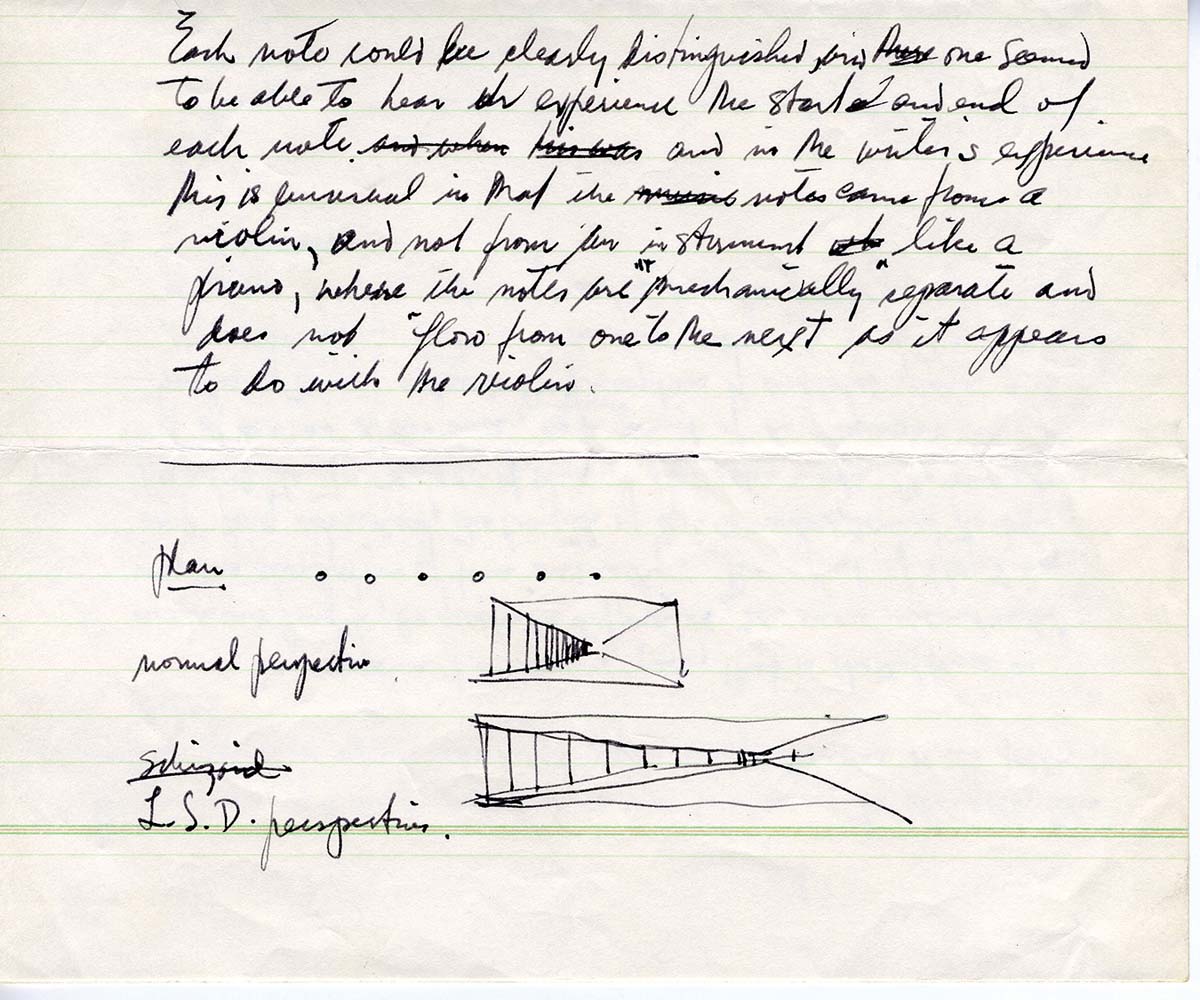 Each note could be clearly distinguished, and there one seemed
to be able to hear or experience the start and end of
each note. and when this was and in the writer's experience
this is unusual in that the music notes came from a
violin, and not from an instrument like a
piano, where the notes are "mechanically" separate and
does not "flow from one to the next as it appears
to do with the violin.
plan
normal perspective
schizoid
L.S.D. perspective.